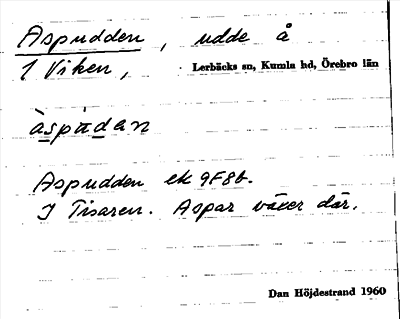 Aspudden, udde å
1 Viken, Lerbäcks sn, Kumla hd, Örebro län
àspùdan
Aspudden ek 9F8b.
I Tisaren. Aspar växer där.
Dan Höjdestrand 1960